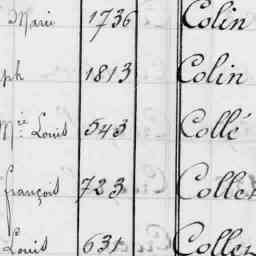 Marie 1736 Colin
ph 1813 Colin
Mie Louis 543 Collé
françois 723 Collet
Louis 631 Collet